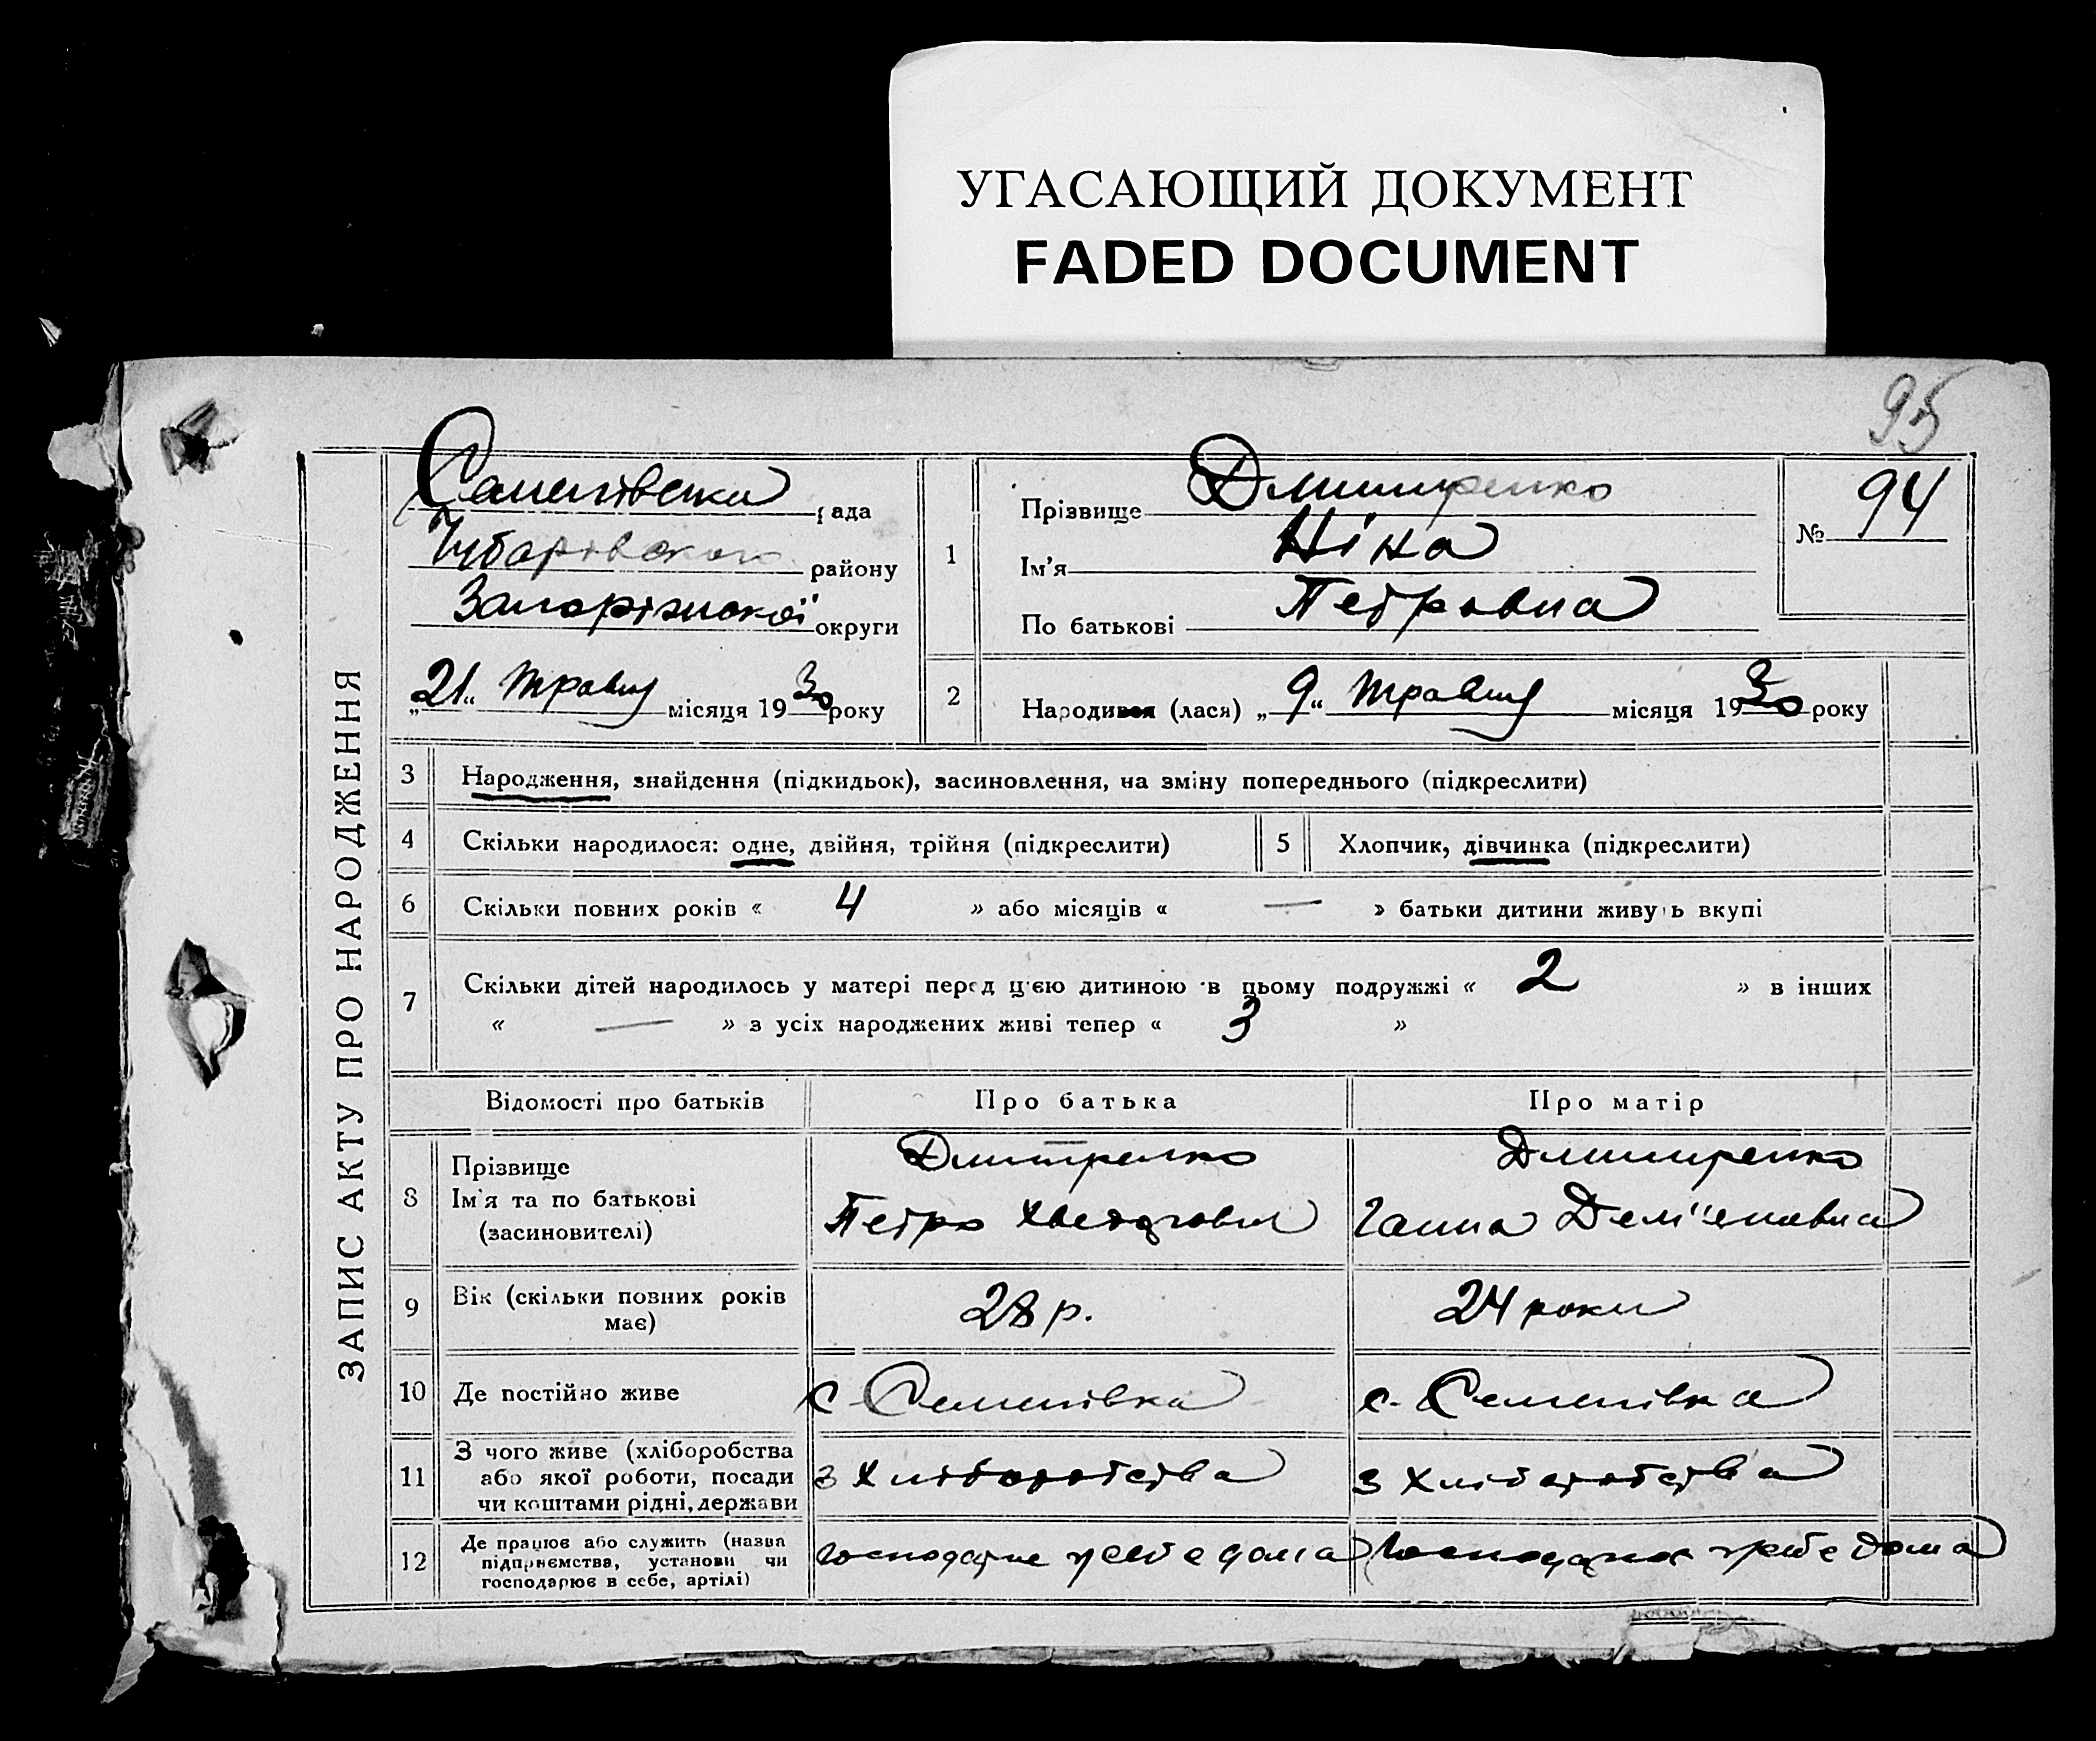 УГАСАЮЩИЙ ДОКУМЕНТ
FADED DOCUMENT
95
ЗАПИС АКТУ ПРО НАРОДЖЕННЯ
Семенівська рада
Чубарівського району
Запорізької округи
„21“ травня місяця 1930 року
1
Прізвище Дмитренко
Ім’я Ніна
По батькові Петрівна
№ 94
2
Народився (лася) „9“ травня місяця 1930 року
3 Народження, знайдення (підкидьок), засиновлення, на зміну попереднього (підкреслити)
4 Скільки народилося: одне, двійня, трійня (підкреслити)
5 Хлопчик, дівчинка (підкреслити)
6 Скільки повних років « 4 » або місяців « — » батьки дитини живуть вкупі
7 Скільки дітей народилось у матері перед ц’єю дитиною в цьому подружжі « 2 » в інших
« — » з усіх народжених живі тепер « 3 »
Відомості про батьків Про батька Про матір
8
Прізвище
Ім’я та по батькові
(засиновителі)
Дмитренко
Петро
Дмитренко
Ганна Дем"янівна
9
Вік (скільки повних років
має)
28 р.
24 роки
10 Де постійно живе
с. Семенівка
с. Семенівка
11
З чого живе (хліборобства
або якої роботи, посади
чи коштами рідні, держави
З хліборобства
З хліборобства
12
Де працює або служить (назва
підприємства, установи чи
господарює в себе, артілі)
у себе дома
у себе дома